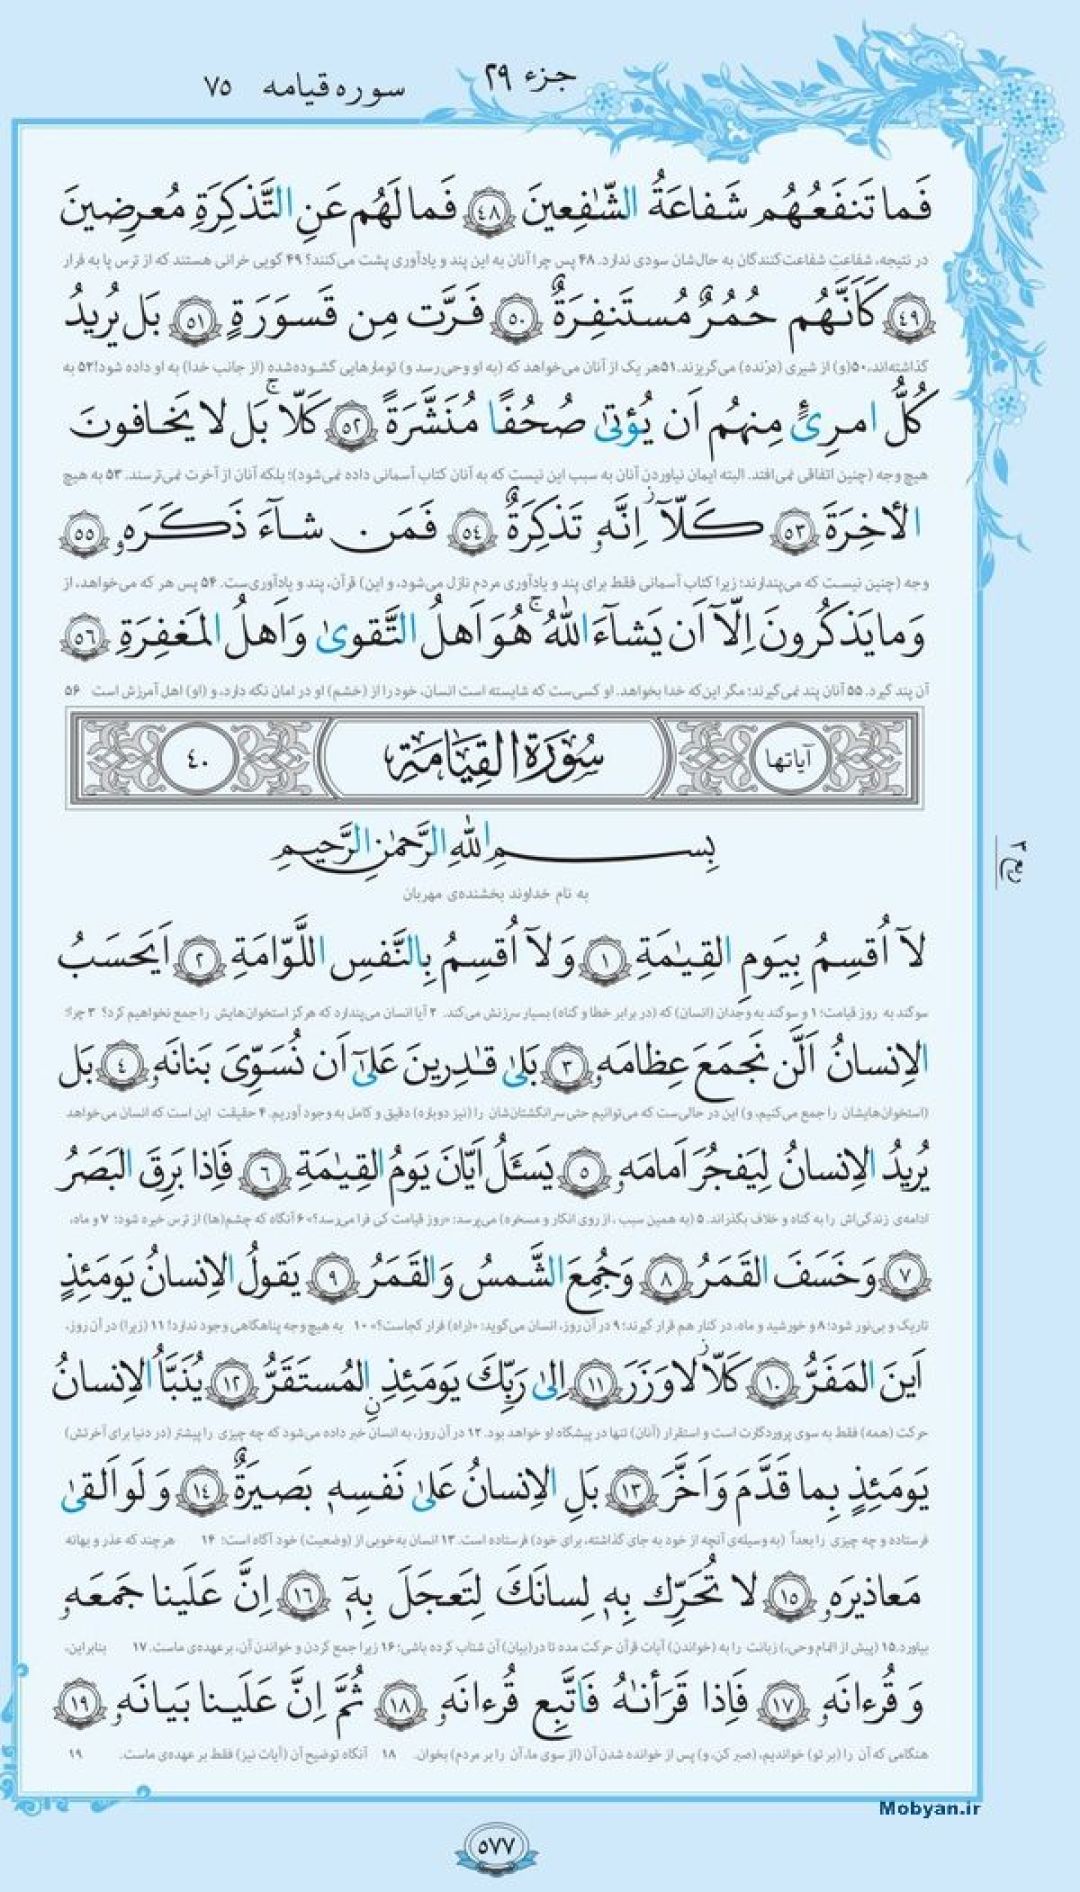 جزء ۲۹
سوره قیامه ۷۵
فَما تَنفَعُهُم شَفاعَةُ الشّٰفِعینَ ﴿٤٨﴾ فَما لَهُم عَنِ التَّذکِرَةِ مُعرِضینَ
در نتیجه، شفاعتِ شفاعت‌کنندگان به حال‌شان سودی ندارد. ۴۸ پس چرا آنان به این پند و یادآوری پشت می‌کنند؟ ۴۹ گویی خرانی هستند که از ترس پا به فرار
﴿٤٩﴾ کَاَنَّهُم حُمُرٌ مُستَنفِرَةٌ ﴿٥٠﴾ فَرَّت مِن قَسوَرَةٍ ﴿٥١﴾ بَل یُریدُ
گذاشته‌اند، ۵۰ (و) از شیری (درّنده) می‌گریزند. ۵۱ هر یک از آنان می‌خواهد که (به او وحی رسد و) تومارهایی گشوده‌شده (از جانب خدا) به او داده شود! ۵۲ به
کُلُّ امرِئٍ مِنهُم اَن یُؤتىٰ صُحُفًا مُنَشَّرَةً ﴿٥٢﴾ کَلّا ۖ بَل لا یَخافونَ
هیچ وجه (چنین اتفاقی نمی‌افتد. البته ایمان نیاوردن آنان به سبب این نیست که به آنان کتاب آسمانی داده نمی‌شود)؛ بلکه آنان از آخرت نمی‌ترسند. ۵۳ به هیچ
الأخِرَةَ ﴿٥٣﴾ کَلّآ اِنَّهٗ تَذکِرَةٌ ﴿٥٤﴾ فَمَن شآءَ ذَکَرَهٗ ﴿٥٥﴾
وجه (چنین نیست که می‌پندارند؛ زیرا کتاب آسمانی فقط برای پند و یادآوری مردم نازل می‌شود، و این) قرآن، پند و یادآوری‌ست. ۵۴ پس هر که می‌خواهد، از
وَما یَذکُرونَ اِلّآ اَن یَشآءَ اللّٰهُ ۚ هُوَ اَهلُ التَّقوىٰ وَاَهلُ المَغفِرَةِ ﴿٥٦﴾
آن پند گیرد. ۵۵ آنان پند نمی‌گیرند؛ مگر این‌که خدا بخواهد. او کسی‌ست که شایسته است انسان، خود را از (خشم) او در امان نگه دارد، و (او) اهل آمرزش است ۵۶
آیاتها سُوْرَةُ القِیَامَةِ ٤٠
بِسمِ اللّٰهِ الرَّحمٰنِ الرَّحیمِ
به نام خداوند بخشنده‌ی مهربان
لآ اُقسِمُ بِیَومِ القِیٰمَةِ ﴿١﴾ وَلآ اُقسِمُ بِالنَّفسِ اللَّوّامَةِ ﴿٢﴾ اَیَحسَبُ
سوگند به روز قیامت؛ ۱ و سوگند به وجدان (انسان) که (در برابر خطا و گناه) بسیار سرزنش می‌کند. ۲ آیا انسان می‌پندارد که هرگز استخوان‌هایش را جمع نخواهیم کرد؟ ۳ چرا؛
الاِنسانُ اَلَّن نَجمَعَ عِظامَهٗ ﴿٣﴾ بَلىٰ قٰدِرینَ عَلىٰٓ اَن نُسَوِّیَ بَنانَهٗ ﴿٤﴾ بَل
(استخوان‌هایشان را جمع می‌کنیم، و) این در حالی‌ست که می‌توانیم حتی سر انگشتان‌شان را (نیز دوباره) دقیق و کامل به وجود آوریم. ۴ حقیقت این است که انسان می‌خواهد
یُریدُ الاِنسانُ لِیَفجُرَ اَمامَهٗ ﴿٥﴾ یَسئَلُ اَیّانَ یَومُ القِیٰمَةِ ﴿٦﴾ فَاِذا بَرِقَ البَصَرُ
ادامه‌ی زندگی‌اش را به گناه و خلاف بگذراند. ۵ (به همین سبب، از روی انکار و مسخره) می‌پرسد: «روز قیامت کی فرا می‌رسد؟» ۶ آنگاه که چشم(ها) از ترس خیره شود؛ ۷ و ماه،
﴿٧﴾ وَخَسَفَ القَمَرُ ﴿٨﴾ وَجُمِعَ الشَّمسُ وَالقَمَرُ ﴿٩﴾ یَقولُ الاِنسانُ یَومَئِذٍ
تاریک و بی‌نور شود؛ ۸ و خورشید و ماه، در کنار هم قرار گیرند؛ ۹ در آن روز، انسان می‌گوید: «(راه) فرار کجاست؟» ۱۰ به هیچ وجه پناهگاهی وجود ندارد! ۱۱ (زیرا) در آن روز،
اَینَ المَفَرُّ ﴿١٠﴾ کَلّا لا وَزَرَ ﴿١١﴾ اِلىٰ رَبِّکَ یَومَئِذٍ المُستَقَرُّ ﴿١٢﴾ یُنَبَّأُ الاِنسانُ
حرکت (همه) فقط به سوی پروردگارت است و استقرار (آنان) تنها در پیشگاه او خواهد بود. ۱۲ در آن روز، به انسان خبر داده می‌شود که چه چیزی را پیشتر (در دنیا برای آخرتش)
یَومَئِذٍ بِما قَدَّمَ وَاَخَّرَ ﴿١٣﴾ بَلِ الاِنسانُ عَلىٰ نَفسِهٖ بَصیرَةٌ ﴿١٤﴾ وَلَو اَلقىٰ
فرستاده و چه چیزی را بعداً (به وسیله‌ی آنچه از خود به جای گذاشته، برای خود) فرستاده است. ۱۳ انسان به‌خوبی از (وضعیت) خود آگاه است؛ ۱۴ هرچند که عذر و بهانه
مَعاذیرَهٗ ﴿١٥﴾ لا تُحَرِّك بِهٖ لِسانَكَ لِتَعجَلَ بِهٖٓ ﴿١٦﴾ اِنَّ عَلَینا جَمعَهٗ
بیاورد. ۱۵ (پیش از اتمام وحی،) زبانت را به (خواندن) آیات قرآن حرکت مده تا در (بیان) آن شتاب کرده باشی؛ ۱۶ زیرا جمع کردن و خواندن آن، بر عهده‌ی ماست. ۱۷ بنابراین،
وَقُرءانَهٗ ﴿١٧﴾ فَاِذا قَرَأنٰهُ فَاتَّبِع قُرءانَهٗ ﴿١٨﴾ ثُمَّ اِنَّ عَلَینا بَیانَهٗ ﴿١٩﴾
هنگامی که آن را (بر تو) خواندیم، (صبر کن، و) پس از خوانده شدن آن (از سوی ما، آن را بر مردم) بخوان. ۱۸ آنگاه توضیح آن (آیات نیز) فقط بر عهده‌ی ماست. ۱۹
ربع ۲
Mobyan.ir
۵۷۷